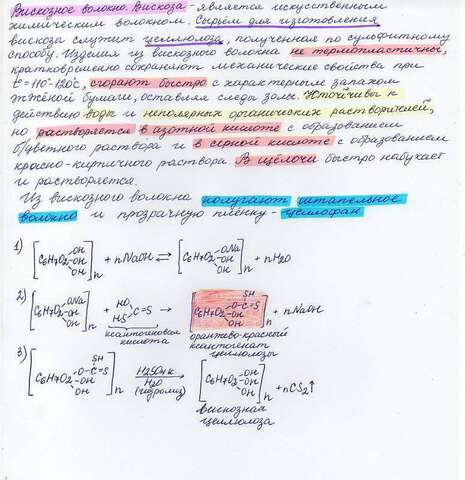 Вискозное волокно. Вискоза - является искусственным
химическим волокном. Сырьём для изготовления
вискоза служит целлюлоза, полученная по сульфитному
способу. Изделия из вискозного волокна не термопластичное,
кратковременно сохраняют механические свойства при
t°=110°-120°C, сгорают быстро с характерным запахом
жжёной бумаги, оставляя следы золы. Устойчивы к
действию воды и неполярных органических растворителей,
но растворяется в азотной кислоте с образованием
б/цветного раствора и в серной кислоте с образованием
красно-кирпичного раствора. В щёлочи быстро набухает
и растворяется.
Из вискозного волокна получают штапельное
волокно и прозрачную плёнку - целлофан
1) [C6H7O2 OH OH OH]n + nNaOH ⇄ [C6H7O2 ONa OH OH]n + nH2O
2) [C6H7O2 ONa OH OH]n + HO HS C=S → [C6H7O2 O-C=S SH OH OH]n + nNaOH
ксантогеновая кислота
оранжево-красный ксантогенат целлюлозы
3) [C6H7O2 O-C=S SH OH OH]n H2SO4 к. H2O (гидролиз) → [C6H7O2 OH OH OH]n + nCS2↑
вискозная
целлюлоза